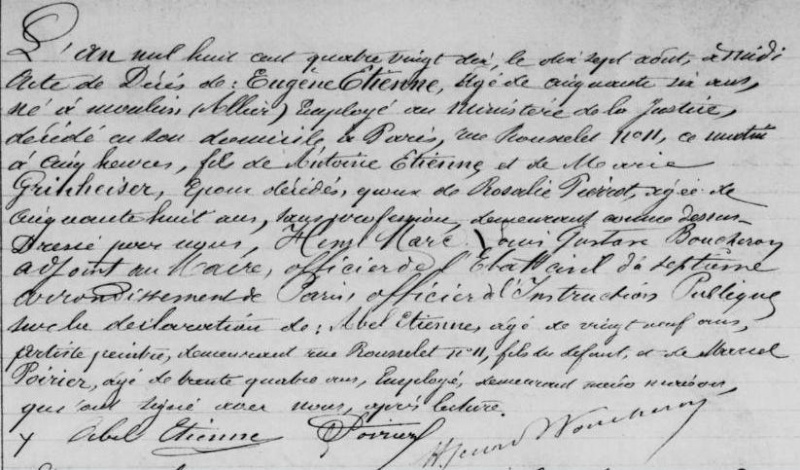 L'an mil huit cent quatre vingt dix, le dix sept août, à midi
Acte de Décès de : Eugène Etienne, âgé de cinquante six ans,
né à Moulins (Allier) Employé au Ministère de la Justice,
décédé en son domicile à Paris, rue Rousselet n° 11, ce matin
à cinq heures, fils de Antoine Etienne, et de Marie
Grinheiser, époux décédés, époux de Rosalie Pierrot, âgée de
cinquante huit ans, sans profession, demeurant comme dessus_
Dressé par nous, Henri Marc Louis Gustave Boucheron
adjoint au Maire, officier de l'Etat civil du septième
arrondissement de Paris, officier de l'Instruction Publique
sur la déclaration de : Abel Etienne, âgé de vingt neuf ans,
artiste peintre, demeurant rue Rousselet n° 11, fils du défunt, et de Marcel
Poirier, âgé de trente quatre ans, Employé, demeurant même maison,
qui ont signé avec nous, après lecture.
Abel Etienne Poirier Boucheron